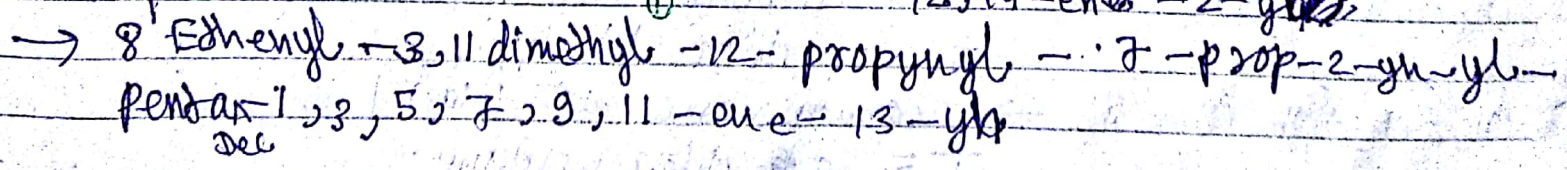 -en -2-y
→ 8 Ethenyl -3,11 dimethyl -12- propynyl - 7 -prop-2-yn-yl-
pentan-1,3,5,7,9,11-ene-13-yn
Dec